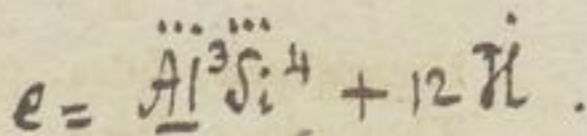 e = A̲l̲⃛³S⃛i⁴ + 12 Ḣ.